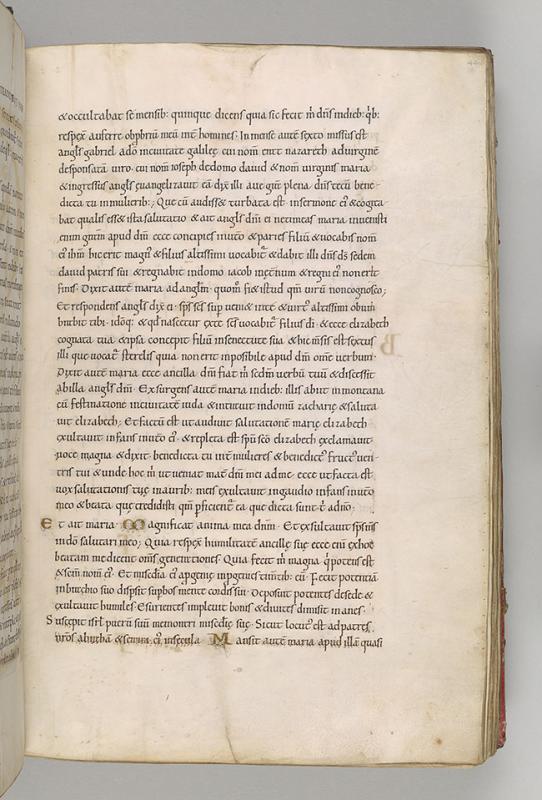 &occultabat se mensib: quinque dicens quia sic fecit m̄ dn̄s indieb: q̄b:
respex̄ auferre obp̄briū meū int̄ homines. In mense autē sexto missus est
angl̄s gabriel adō incivitatē galileę cui nom̄ ent nazareth advirginē
desponsatā viro. cui nom̄ ioseph dedomo david & nom̄ virginis maria
& ingressus angl̄s evangelizavit eā dx̄ illi ave grā plena dn̄s tecū bene
dicta tu inmulierib:. Que cū audiss& turbata est insermone ei' & cogita
bat qualis ess& ista salutatio & ait angl̄s dn̄i ei netimeas maria invenisti
enim grām apud dn̄m ecce concipies inutō & paries filiū & vocabis nom̄
ei' ih̄m hic erit magn' & filius altissimi vocabit' & dabit illi dn̄s ds̄ sedem
david patris sui & regnabit indomo iacob inęt'num & regni ei' nonerit
finis. Dixit autē maria ad anglm̄. quom̄ fi& istud qm̄ virū noncognosco;
Et respondens angl̄s dx̄ ei. sp̄s sc̄s sup veni& inte & virt' altissimi obum
brabit tibi. idōq: & qd̄ nascetur exte sc̄m vocabit' filius dī. & ecce elizabeth
cognata tua & ipsa concepit filiū insenectute sua & hic m̄sis est sextus
illi que vocat' sterelis quia non erit inposibile apud dm̄ omē verbum.
Dixit autē maria ecce ancilla dn̄i fiat m̄ scdm̄ verbū tuū & discessit
abilla angl̄s dn̄i. Exsurgens autē maria indieb: illis abiit in montana
cū festinatione incivitatē iuda & intravit indomū zacharię & saluta
vit elizabeth; Et factū est ut audivit salutationē marię elizabeth
exultavit infans inutō ei' & repleta est spū scō elizabeth exclamavit
voce magna & dixit. benedicta tu int̄ mulieres & benedict' fruct' ven
tris tui & unde hoc m̄ ut veniat mat̄ dn̄i mei ad me. ecce ut facta est
vox salutationis tuę inaurib: meis exultavit ingaudio infans inutō
meo & beata que credidisti qm̄ p̄ficient' ea que dicta sunt t̄ adn̄o.
Et ait maria. Magnificat anima mea dnm̄. Et exsultavit sps̄ ms̄
indō salutari meo; Quia respex̄ humilitatē ancille suę ecce enī exhoc
beatam me dicent om̄s generationes. Quia fecit m̄ magna q̄ potens est
& scm̄ nom̄ ei'. Et misedia ei' apgenię inpgenies timtib: eū. Fecit potentiā
inbrachio suo dispsit supbos mente cordis sui. Deposuit potentes desede &
exultavit humiles. Esurientes implevit bonis & divites dimisit inanes.
Suscepit isrl̄ puerū suū memorari misedię suę. Sicut locut' est ad patres
n̄ros abraham & semini ei' insecula. Mansit autē maria apud illā quasi